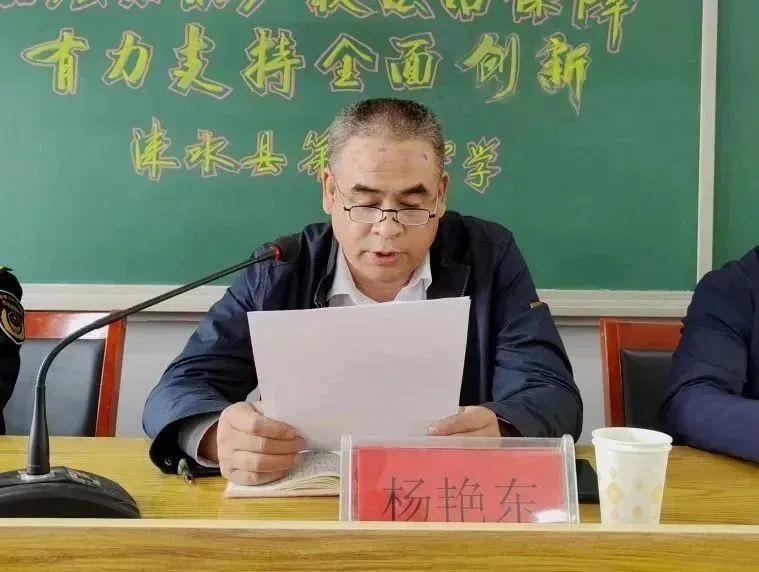 产权法治保障
有力支持全面创新
涞水县第 学
杨艳东